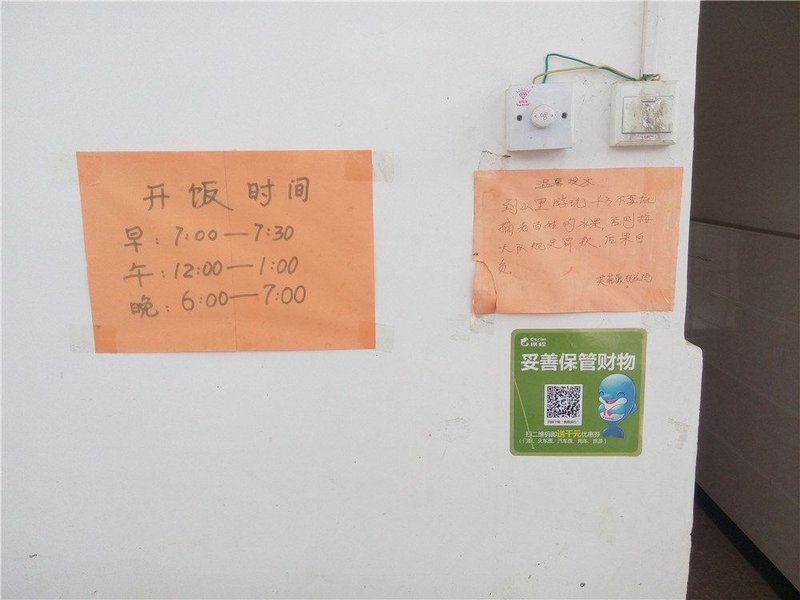 开饭时间
早：7:00—7:30
午：12:00—1:00
晚：6:00—7:00
温馨提示
到山里游玩 千万不要乱
摘老百姓的水果，否则按
大队规定罚款，后果自
负。
Ctrip
携程
妥善保管财物
扫二维码即送千元优惠券
（门票、火车票、汽车票、用车、旅游）